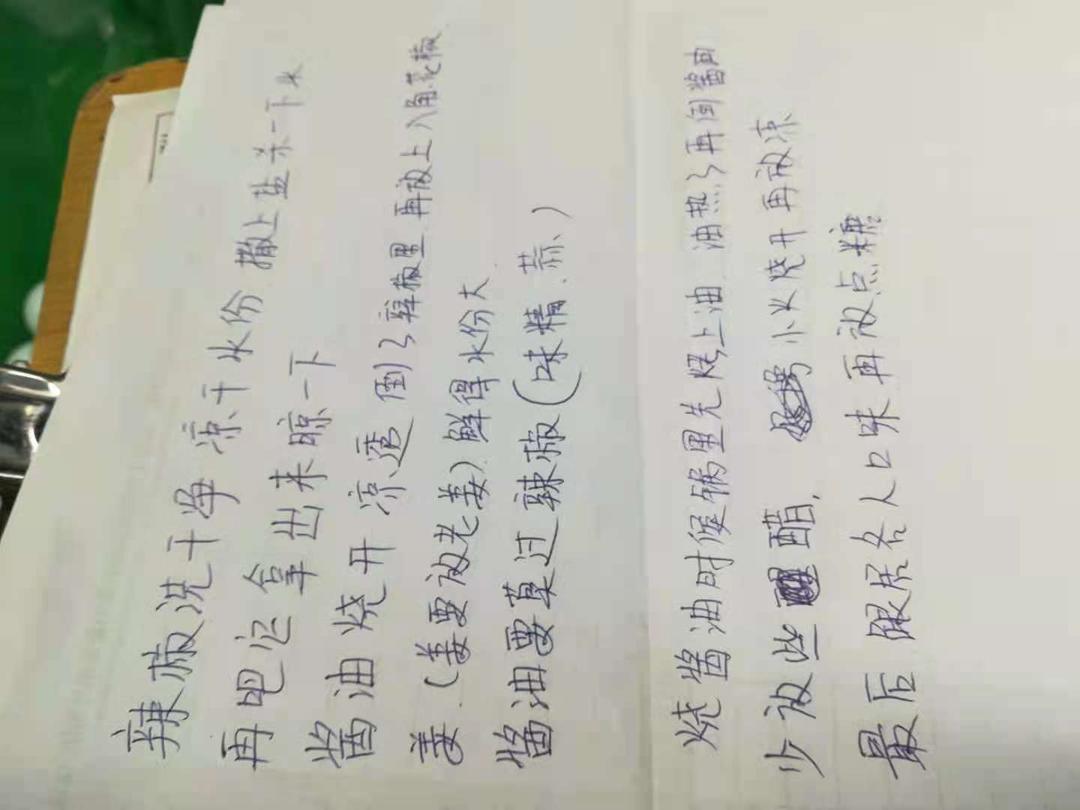 辣椒洗干净凉干水份 撒上盐杀一下水
再吧它拿出来晾一下
酱油烧开凉透倒了辣椒里再放上八角.花椒
姜.(姜要放老姜)鲜得水份大
酱油要莫过辣椒(味精.蒜、)
烧酱油时侯锅里先烧上油 油热了再倒酱油
少放些醋. 小火烧开再放凉
最后跟居各人口味再放点糖